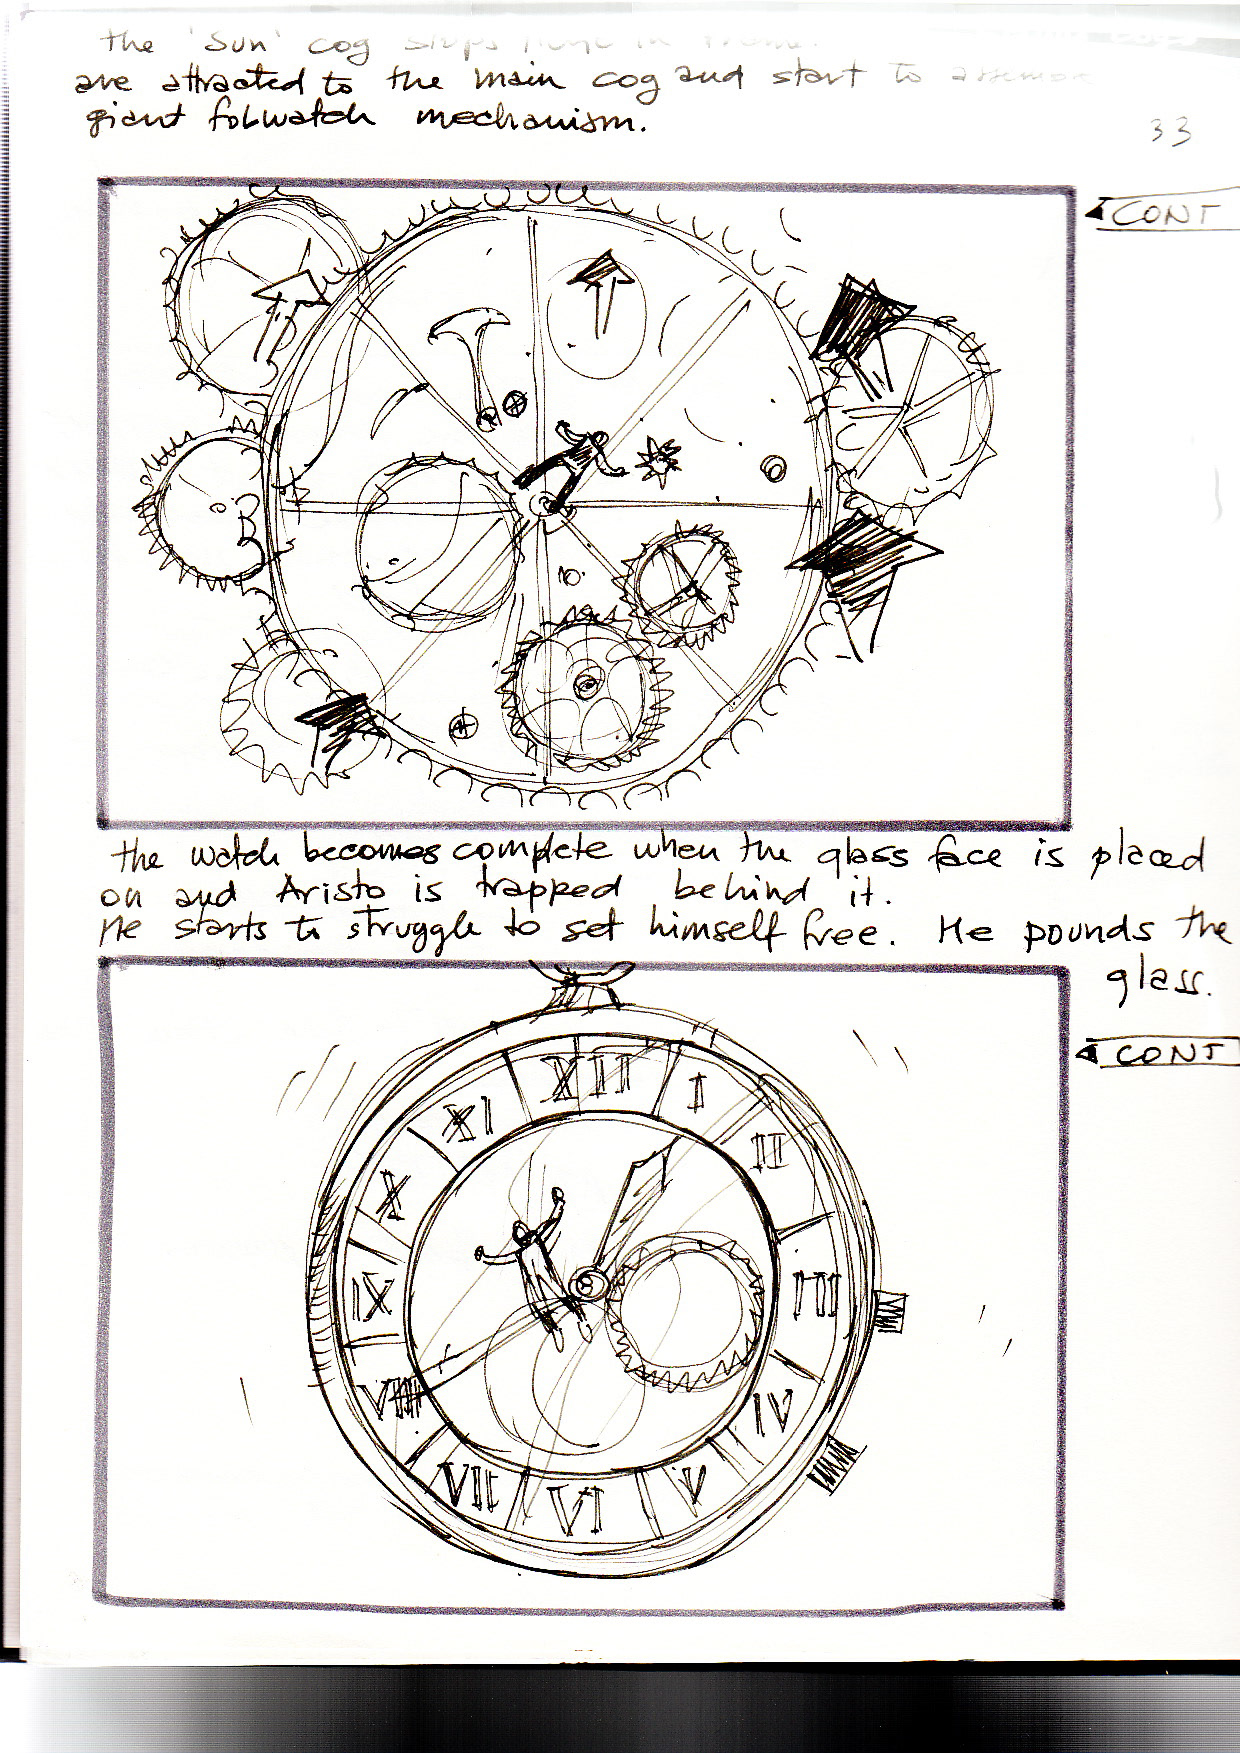 the 'Sun' cog stops
are attracted to the main cog and start to
giant fobwatch mechanism.
33
CONT
the watch becomes complete when the glass face is placed
on and Aristo is trapped behind it.
He starts to struggle to set himself free. He pounds the
glass.
CONT
XII
I
II
III
IV
V
VI
VII
VIII
IX
X
XI